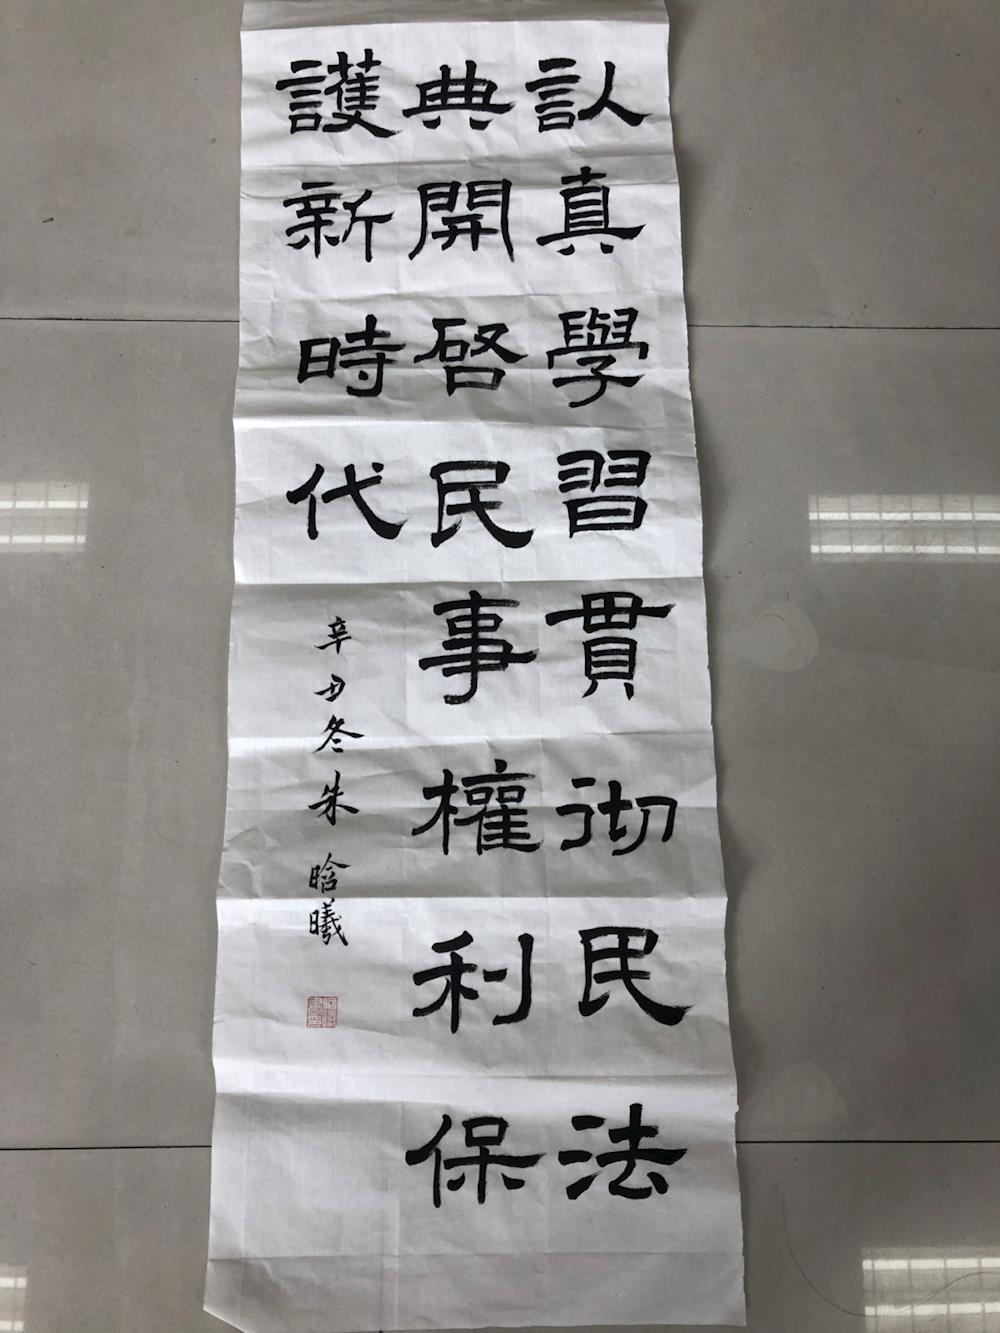 认真學習貫彻民法
典開啓民事權利保
護新時代
辛丑冬朱晗曦